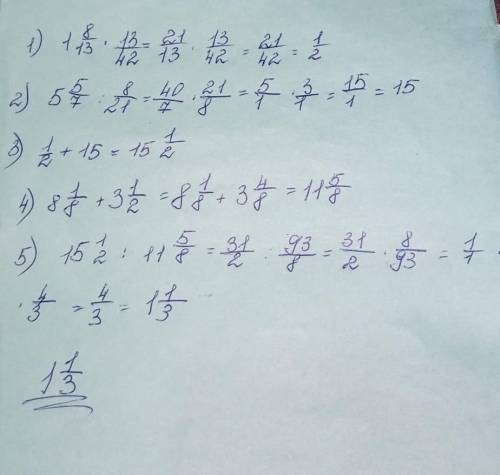 1) 1 8/13 · 13/42 = 21/13 · 13/42 = 21/42 = 1/2
2) 5 5/7 : 8/21 = 40/7 · 21/8 = 5/1 · 3/1 = 15/1 = 15
3) 1/2 + 15 = 15 1/2
4) 8 1/8 + 3 1/2 = 8 1/8 + 3 4/8 = 11 5/8
5) 15 1/2 : 11 5/8 = 31/2 : 93/8 = 31/2 · 8/93 = 1/1 ·
· 4/3 = 4/3 = 1 1/3
1 1/3